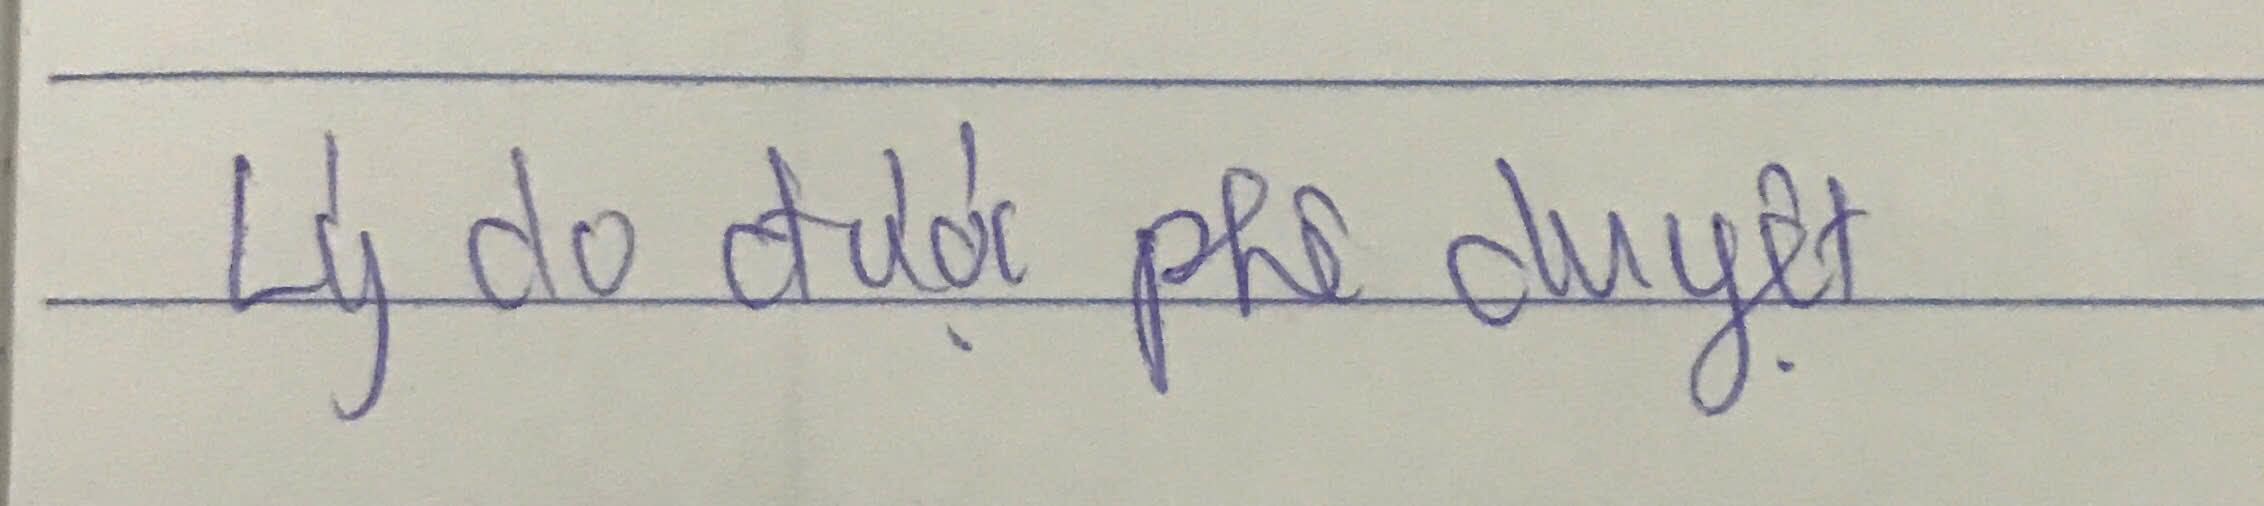 Lý do được phê duyệt